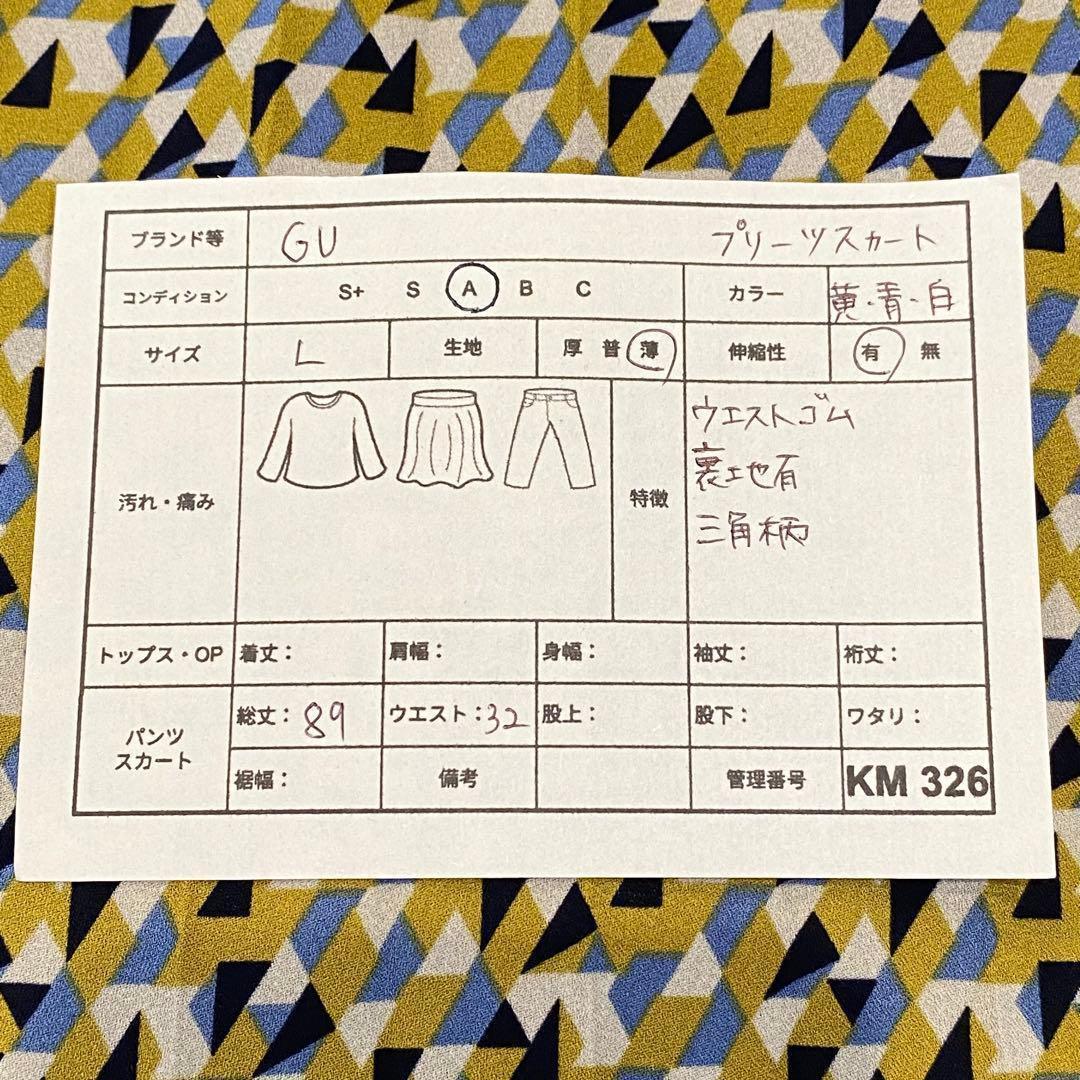 ブランド等 GU プリーツスカート
コンディション S+ S A B C カラー 黄・青・白
サイズ L 生地 厚 普 薄 伸縮性 有 無
汚れ・痛み 特徴 ウエストゴム
裏地有
三角柄
トップス・OP 着丈: 肩幅: 身幅: 袖丈: 裄丈:
パンツ
スカート
総丈:89 ウエスト:32 股上: 股下: ワタリ:
裾幅: 備考 管理番号 KM 326